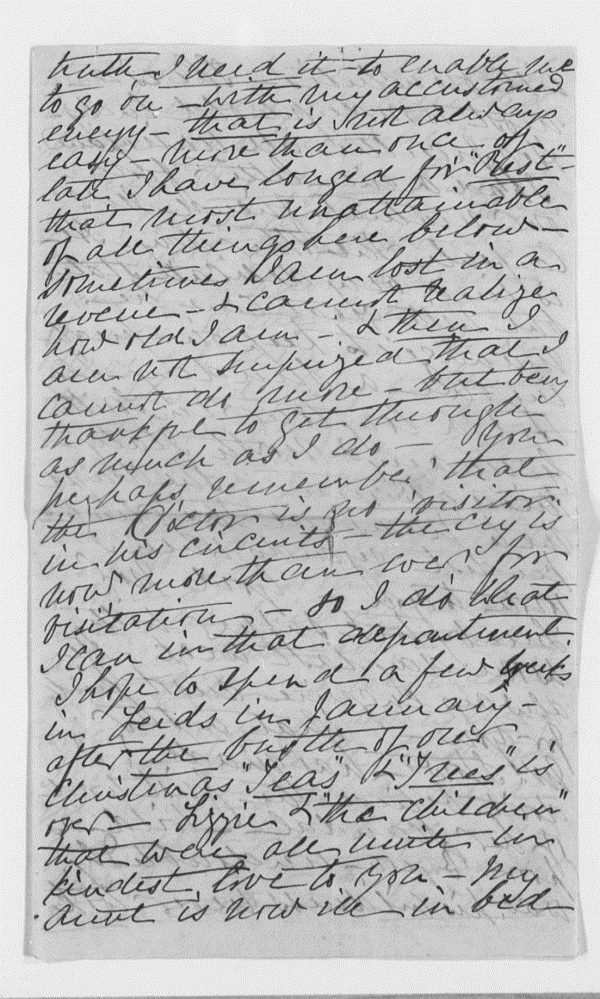 truth I need it - to enable me
to go on - with my accustomed
energy - that is not always
easy - more than once of
late I have longed for "Rest" -
that most unattainable
of all things here below -
sometimes I am lost in a
reverie - & cannot realize
how old I am - & then I
am not surprized that I
cannot do more - but being
thankful to get through
as much as I do - You
perhaps remember that
the Doctor is no visitor
in his circuits - the cry is
now more than ever for
visitation - so I do what
I can in that department.
I hope to spend a few weeks
in Leeds in January -
after the bustle of our
Christmas "Teas" & "Trees" is
over - Lizzie & "the children"
that were all unite in
kindest love to you - My
aunt is now ill in bed